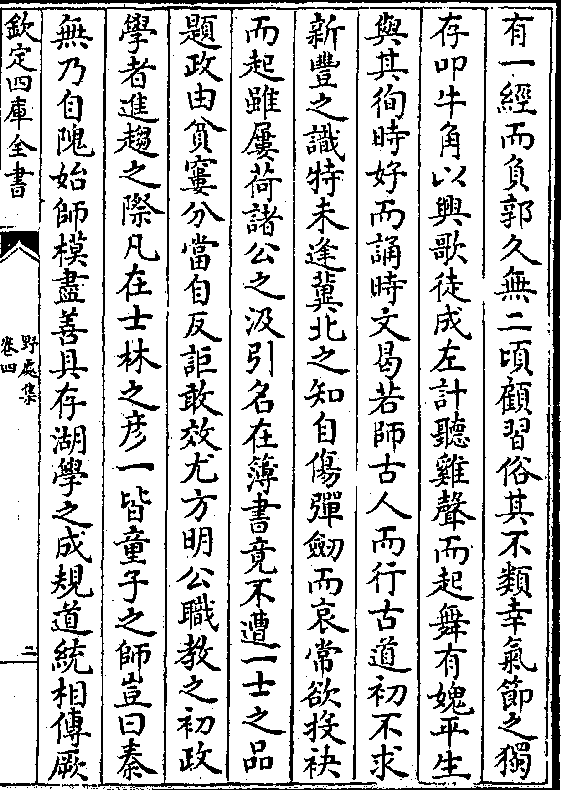 有一經而負郭久無二頃顧習俗其不類幸氣節之獨
存叩牛角以興歌徒成左計聽雞聲而起舞有媿平生
與其徇時好而誦時文曷若師古人而行古道初不求
新豐之識特未逢冀北之知自傷彈劒而哀常欲投袂
而起雖屢荷諸公之汲引名在簿書竟不遭一士之品
題政由貧窶分當自反詎敢效尤方明公職教之初政
學者進趨之際凡在士林之彦一皆童子之師豈曰秦
無乃自隗始師模盡善具存湖學之成規道統相傳厥
欽定四庫全書
野處集
卷四
二